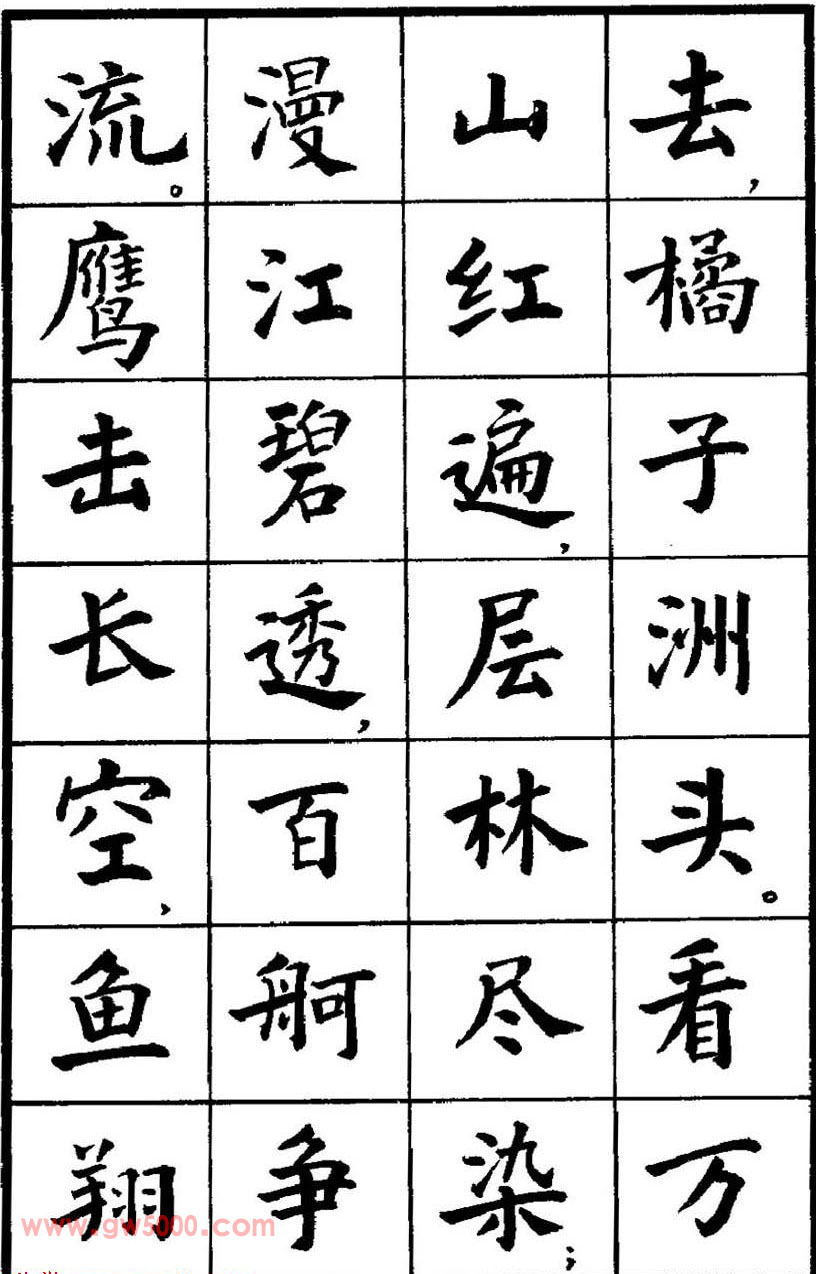 去，橘子洲头。看万
山红遍，层林尽染；
漫江碧透，百舸争
流。鹰击长空，鱼翔
www.gw5000.com